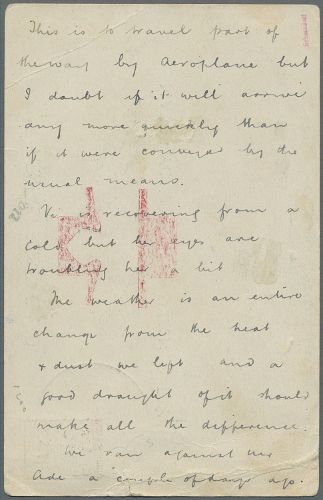 This is to travel part of
the way by Aeroplane but
I doubt if it will arrive
any more quickly than
if it were conveyed by the
usual means.
Vi is recovering from a
cold but her eyes are
troubling her a bit
The weather is an entire
change from the heat
& dust we left and a
good draught of it should
make all the difference.
We ran against
Ade a couple of days ago.